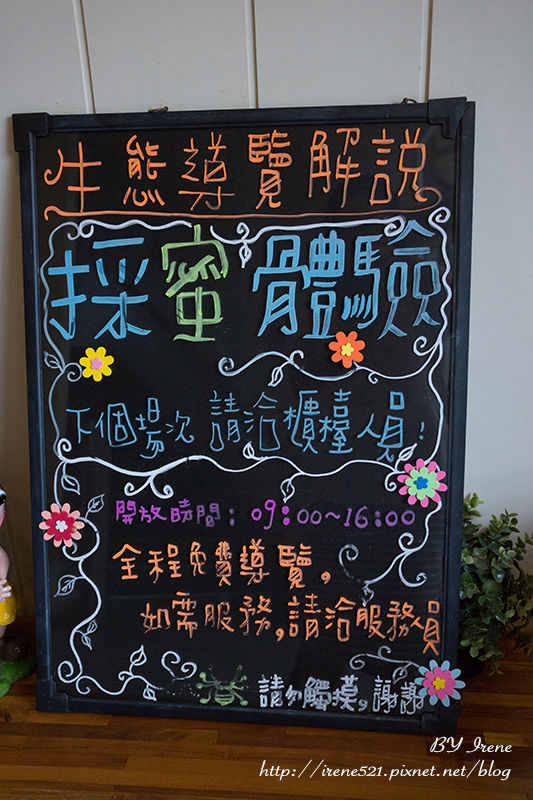 生態導覽解說
採蜜體驗
下個場次 請洽櫃檯人員!
開放時間: 09:00~16:00
全程免費導覽,
如需服務,請洽服務員
請勿觸摸,謝謝
BY Irene
http://irene521.pixnet.net/blog